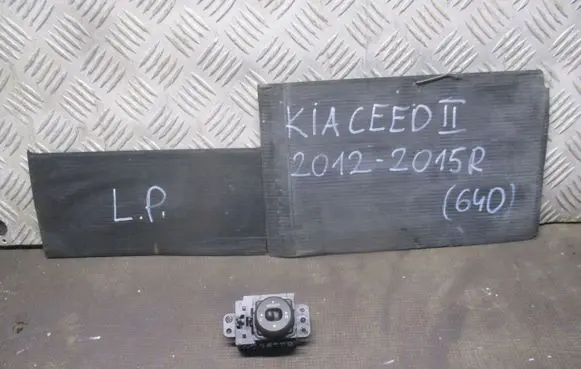 KIA CEED II
2012-2015R
(640)
L.P.